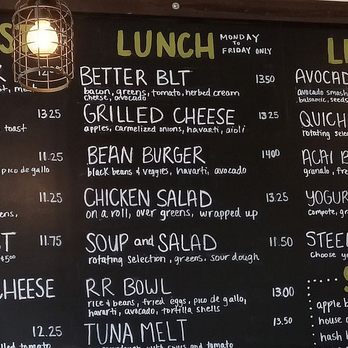 ST
R
13.25
toast
11.25
pico de gallo
11.25
ST 11.75
$5.00
CHEESE
12.25
tomato
LUNCH MONDAY to FRIDAY ONLY
BETTER BLT 13.50
bacon, greens, tomato, herbed cream
cheese, avocado
GRILLED CHEESE 13.25
apples, carmelized onions, havarti, aioli
BEAN BURGER 14.00
black beans & veggies, havarti, avocado
CHICKEN SALAD 13.25
on a roll, over greens, wrapped up
SOUP and SALAD 11.50
rotating selection, greens, sour dough
RR BOWL 13.00
rice & beans, fried eggs, pico de gallo,
havarti, avocado, tortilla shells
TUNA MELT 13.50
L
AVOCAD
avocado smash
balsamic, seeds
QUICH
rotating selec
ACAI B
granola, fre
YOGUR
compote, gr
STEE
Choose yo
apple b
house
hash b